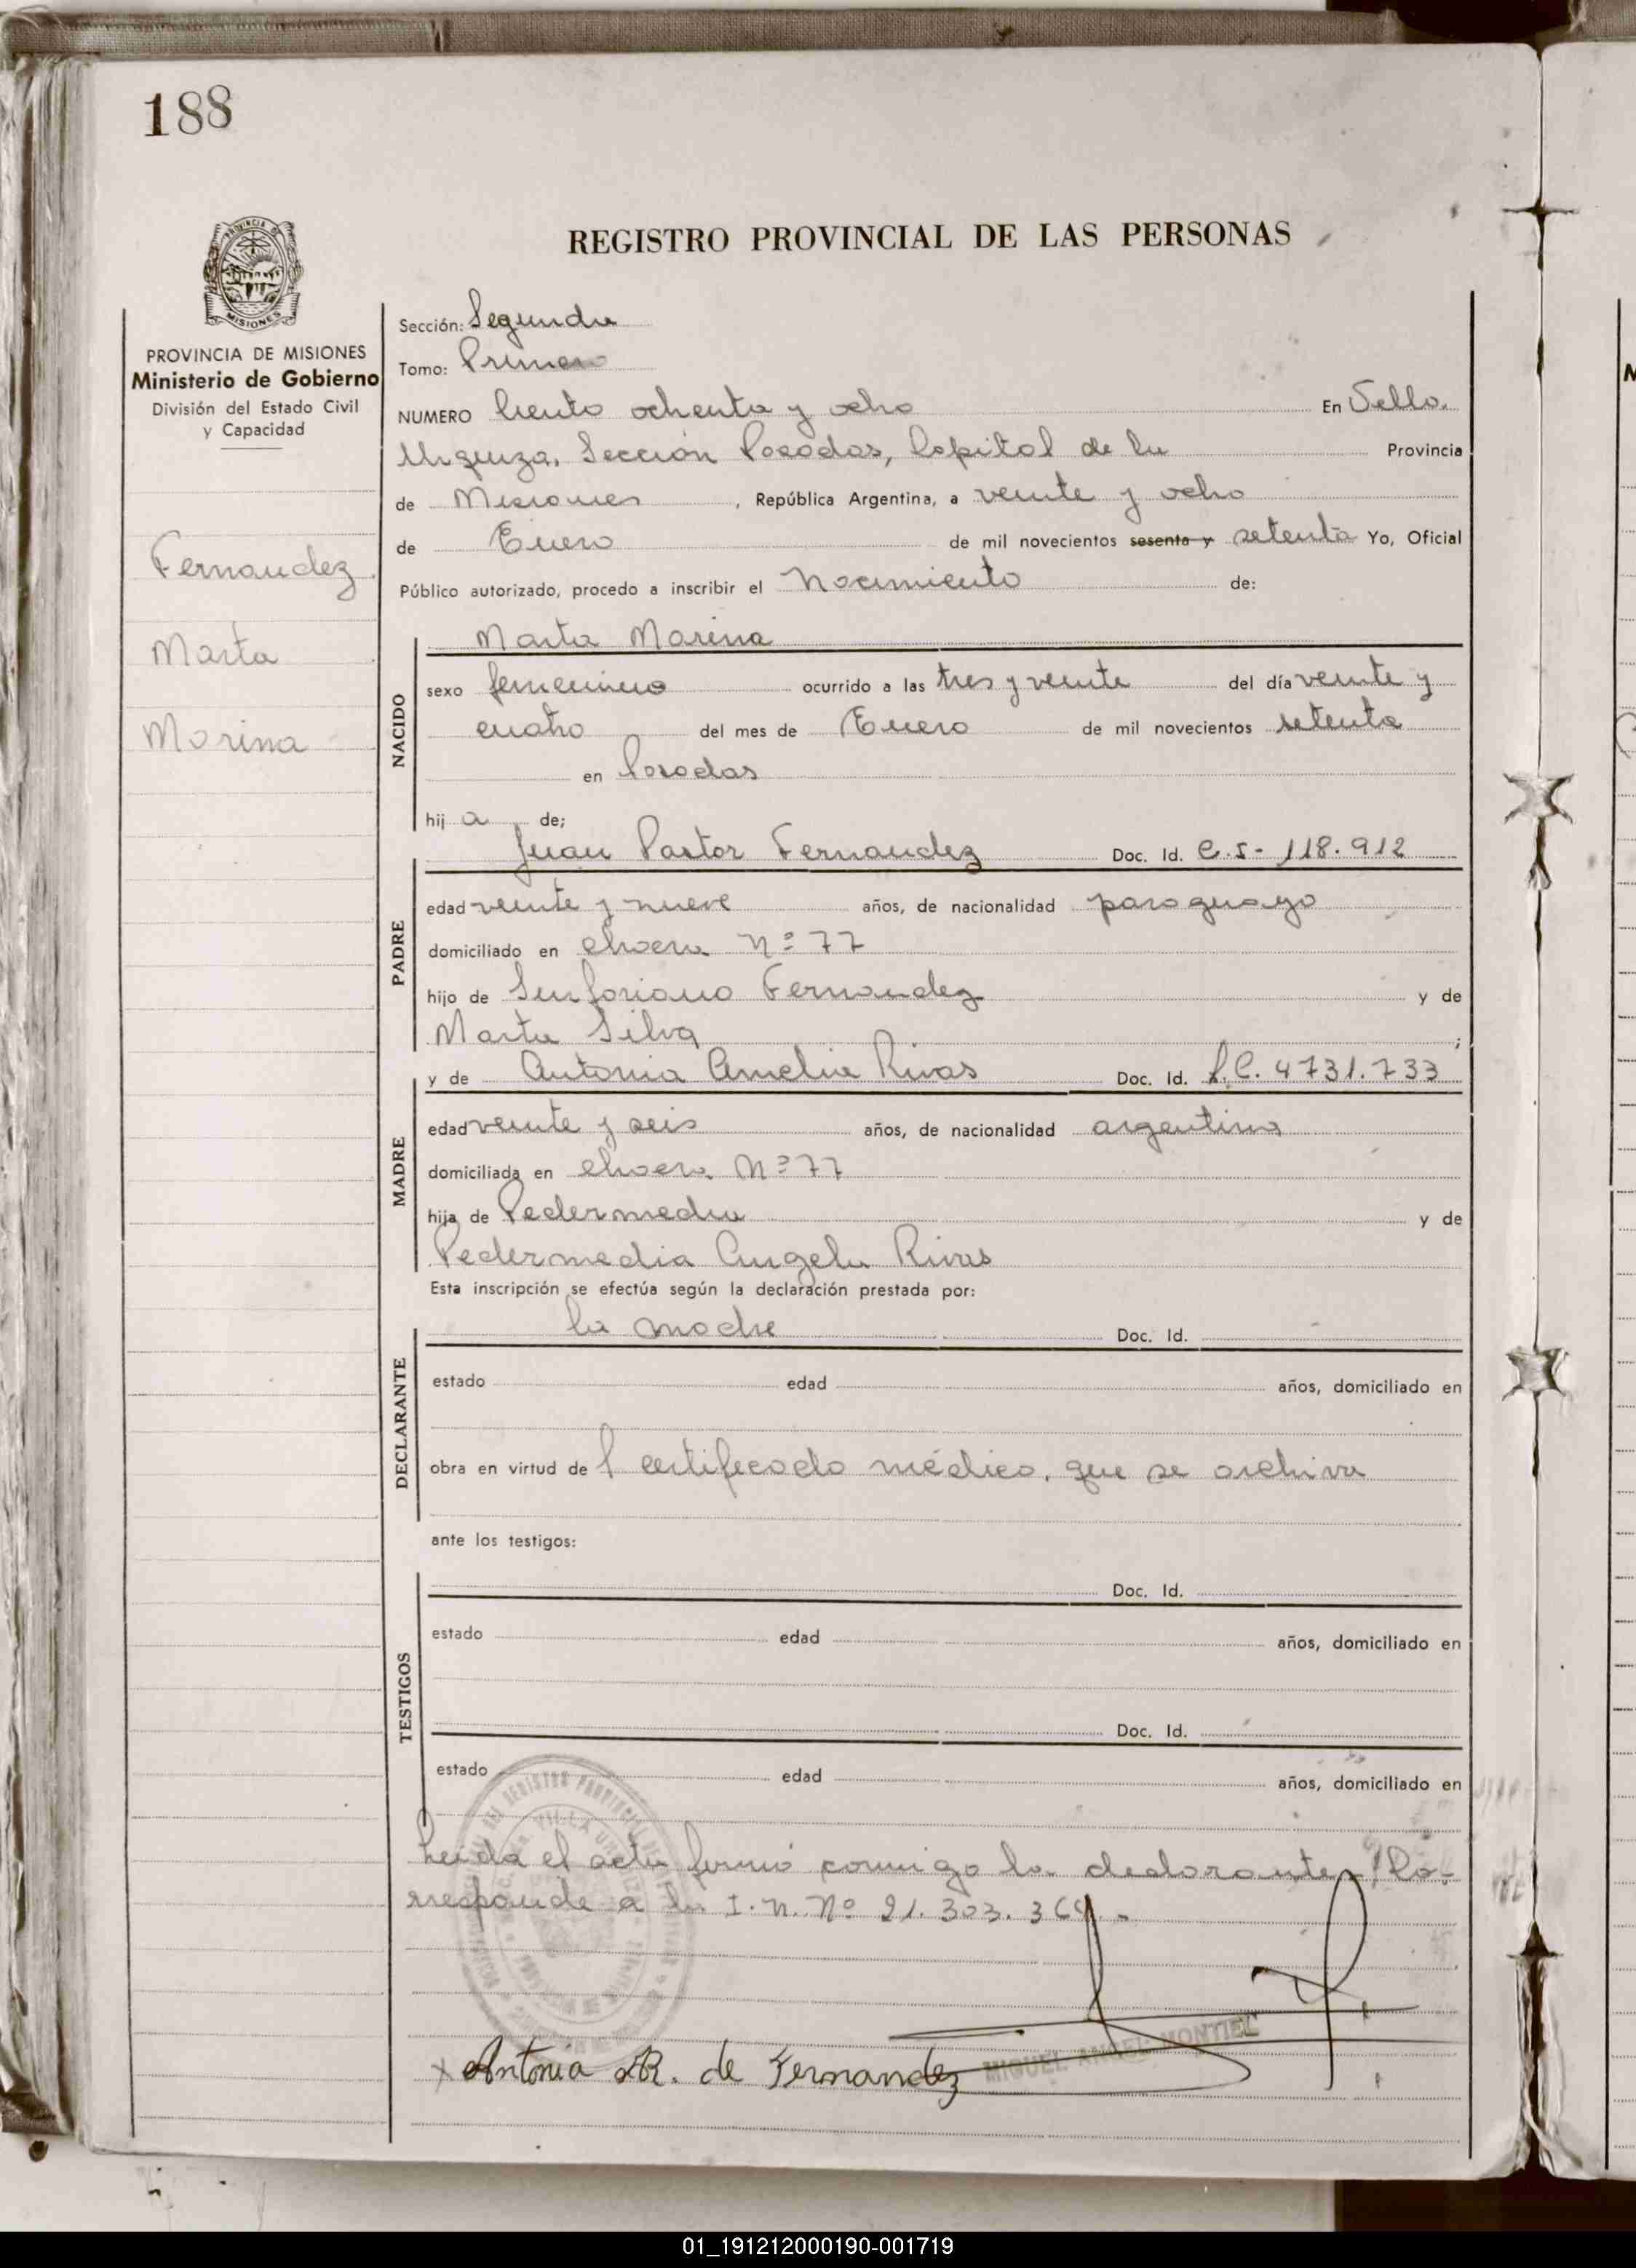 188
REGISTRO PROVINCIAL DE LAS PERSONAS
PROVINCIA DE MISIONES
Ministerio de Gobierno
División del Estado Civil
y Capacidad
Fernandez
Marta
Marina
Sección: Segunda
Tomo: Primero
NUMERO Ciento ochenta y ocho En Vello.
Urquiza, Sección Posadas, Capital de la Provincia
de Misiones, República Argentina, a veinte y ocho
de Enero de mil novecientos sesenta y setenta Yo, Oficial
Público autorizado, procedo a inscribir el Nacimiento de:
NACIDO
Marta Marina
sexo femenino ocurrido a las tres y veinte del día veinte y
cuatro del mes de Enero de mil novecientos setenta
en Posadas
hij a de;
PADRE
Juan Pastor Fernandez Doc. Id. C.I- 118.912
edad veinte y nueve años, de nacionalidad paraguayo
domiciliado en Nº 77
hijo de Sinforiano Fernandez y de
Marta Silva ;
MADRE
y de Antonia Amelia Rivas Doc. Id. L.C. 4731.733
edad veinte y seis años, de nacionalidad argentina
domiciliada en Nº 77
hija de y de
Angela Rivas
Esta inscripción se efectúa según la declaración prestada por:
DECLARANTE
la madre Doc. Id.
estado edad años, domiciliado en
obra en virtud de l certificado médico, que se archiva
ante los testigos:
TESTIGOS
Doc. Id.
estado edad años, domiciliado en
Doc. Id.
estado edad años, domiciliado en
Leída el acta firmó conmigo la declarante / Co-
rresponde a la I. N. Nº 21. 303.
MIGUEL ANGEL MONTIEL
x Antonia R. de Fernandez
01_191212000190-001719